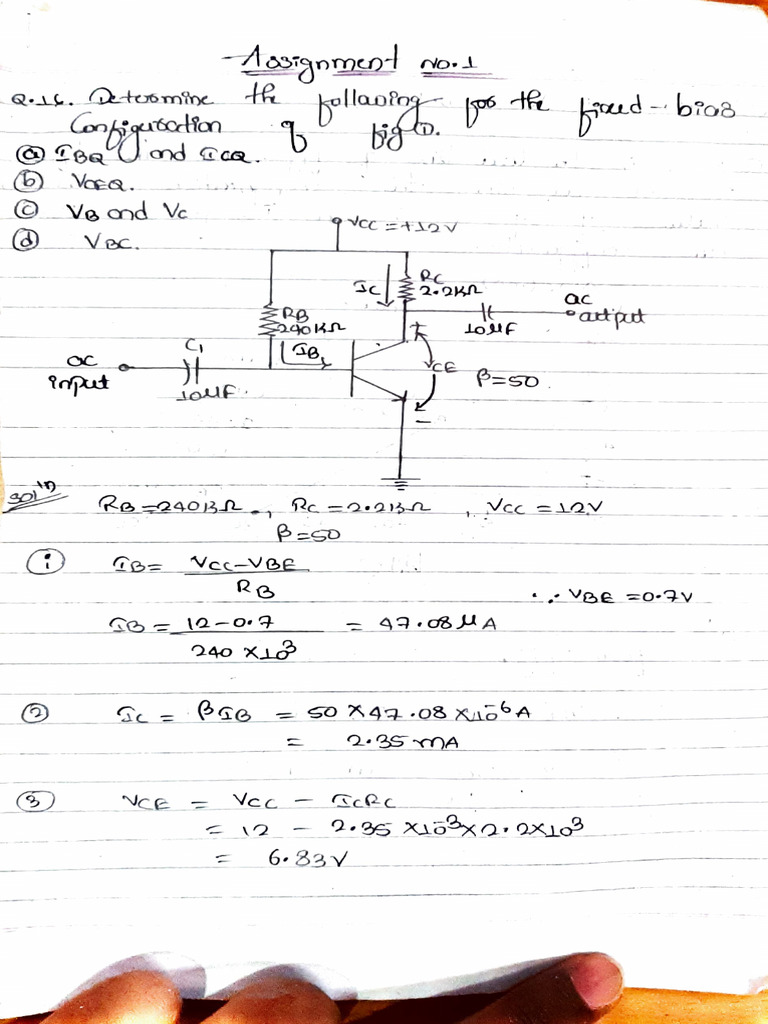 Assignment No.1
Q.1c. Determine the following for the fixed-bias
Configuration of fig ①.
ⓐ IBQ and ICQ.
ⓑ VCEQ.
ⓒ VB and VC
ⓓ VBC.
VCC = +12V
IC
RC
2.2KΩ
RB
240KΩ
ac
output
10μF
C1
IB
ac
input
10μF
+
VCE
β=50
−
solⁿ
RB=240KΩ, RC=2.2KΩ, VCC=12V
β=50
① IB= VCC-VBE
RB
∵ VBE=0.7V
IB = 12-0.7 = 47.08 μA
240 ×10³
② IC = βIB = 50 × 47.08 ×10⁻⁶A
= 2.35 mA
③ VCE = VCC - ICRC
= 12 - 2.35 ×10⁻³×2.2×10³
= 6.83V